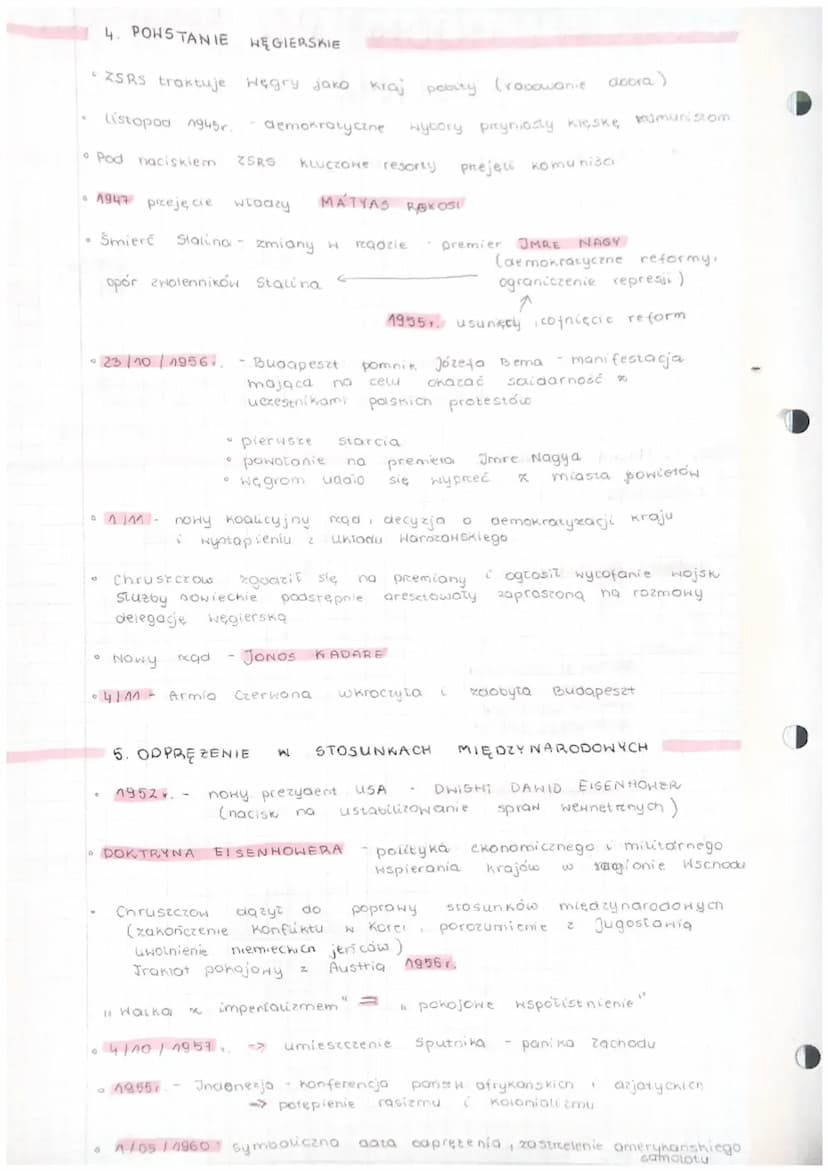 4. POWSTANIE WĘGIERSKIE
• ZSRS traktuje Węgry jako kraj pobity (rabowanie dobra)
• listopad 1945r. - demokratyczne wybory przyniosły klęskę komunistom
• Pod naciskiem ZSRS kluczowe resorty przejęli komuniści
• 1947 przejęcie władzy MÁTYAS RAKOSI
• Śmierć Stalina - zmiany w rządzie - premier IMRE NAGY
(demokratyczne reformy,
opór zwolenników Stalina ← ograniczenie represji)
↑
1955r. usunięty, cofnięcie reform
• 23/10/1956r. - Budapeszt pomnik Józefa Bema - manifestacja
mająca na celu okazać solidarność z
uczestnikami polskich protestów
• pierwsze starcia
• powołanie na premiera Imre Nagya
• węgrom udało się wyprzeć z miasta sowietów
• 1/11 - nowy koalicyjny rząd, decyzja o demokratyzacji kraju
i wystąpieniu z układu Warszawskiego
• Chruszczow zgodził się na przemiany i ogłosił wycofanie wojsk
Służby sowieckie podstępnie aresztowały zaproszoną na rozmowy
delegację węgierską
• Nowy rząd - JONOS KADARE
• 4/11 - Armia Czerwona wkroczyła i zdobyła Budapeszt
5. ODPRĘŻENIE W STOSUNKACH MIĘDZYNARODOWYCH
• 1952r. - nowy prezydent USA - DWIGHT DAWID EISENHOWER
(nacisk na ustabilizowanie spraw wewnętrznych)
• DOKTRYNA EISENHOWERA - polityka ekonomicznego i militarnego
wspierania krajów w regionie Wschodu
• Chruszczow dążył do poprawy stosunków międzynarodowych
(zakończenie konfliktu w Korei, porozumienie z Jugosławią
uwolnienie niemieckich jeńców)
Traktat pokojowy z Austrią 1956r.
"Walka z imperializmem" = "pokojowe współistnienie"
• 4/10/1957r. => umieszczenie Sputnika - panika Zachodu
• 1955r. - Indonezja - konferencja państw afrykańskich i azjatyckich
=> potępienie rasizmu i kolonializmu
• 1/05/1960r symboliczna data odprężenia, zastrzelenie amerykańskiego
samolotu